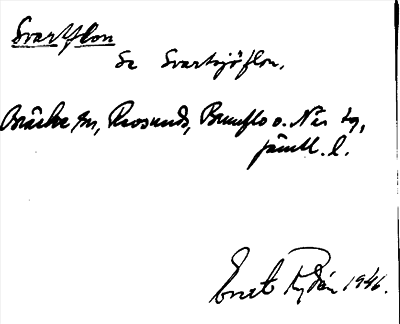 Svartflon
Se Svartsjöflon.
Bräcke sn, Revsunds, Brunflo o. Näs tg,
Jämtl. l.
Ernst Rydén 1946.